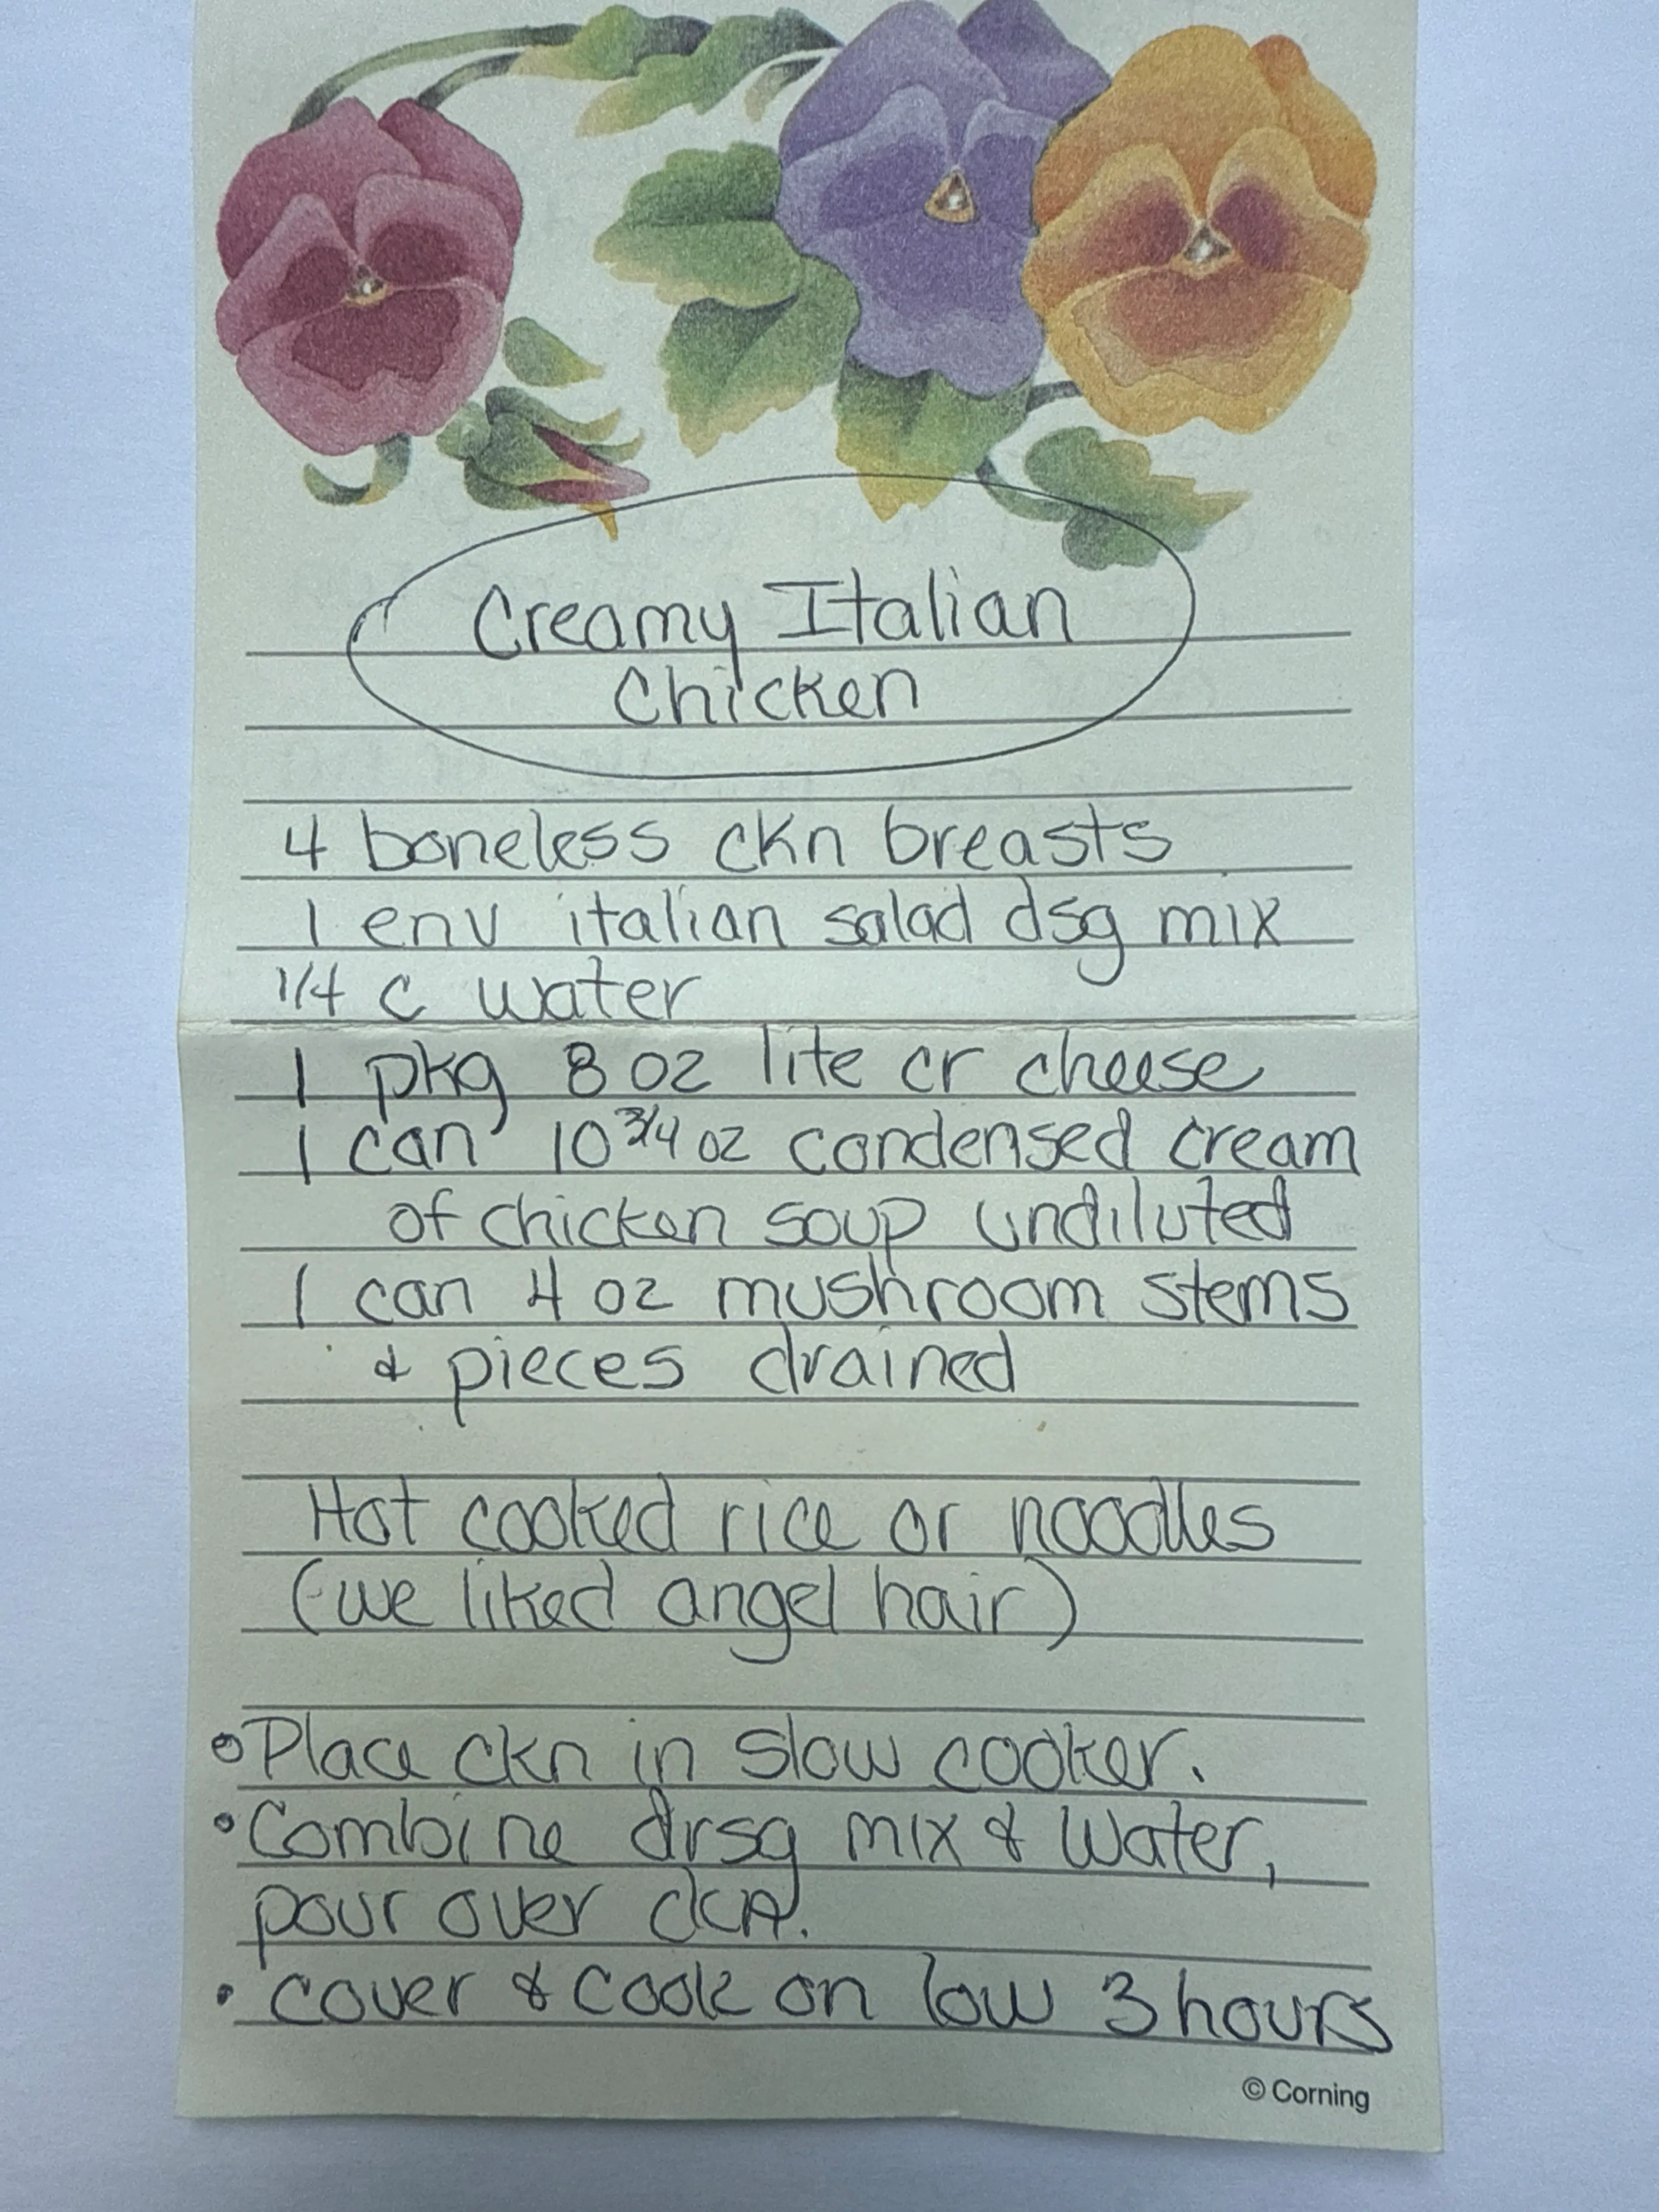 Creamy Italian
Chicken
4 boneless ckn breasts
1 env italian salad dsg mix
1/4 c water
1 pkg 8 oz lite cr cheese
1 can 10 3/4 oz condensed cream
of chicken soup undiluted
1 can 4 oz mushroom stems
& pieces drained
Hot cooked rice or noodles
(we liked angel hair)
• Place ckn in slow cooker.
• Combine drsg mix & water,
pour over ckn.
• cover & cook on low 3 hours
© Corning